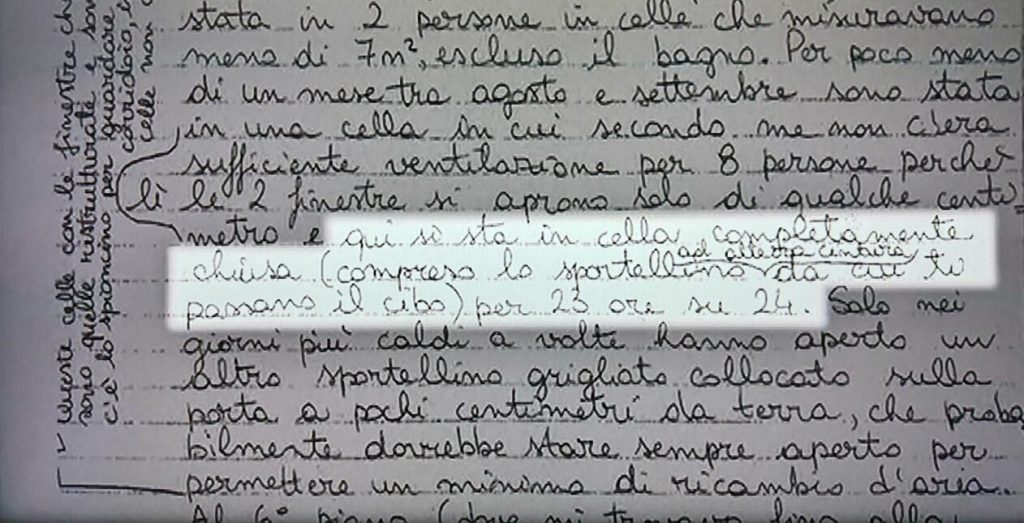 stata in 2 persone in celle che misuravano
meno di 7m², escluso il bagno. Per poco meno
di un mese tra agosto e settembre sono stata
in una cella in cui secondo me non c'era
sufficiente ventilazione per 8 persone perché
lì le 2 finestre si aprono solo di qualche centi=
metro e qui si sta in cella completamente
chiusa (compreso lo sportellino ad altezza cintura da cui ti
passano il cibo) per 23 ore su 24. Solo nei
giorni più caldi a volte hanno aperto un
altro sportellino grigliato collocato sulla
porta a pochi centimetri da terra, che proba
bilmente dovrebbe stare sempre aperto per
permettere un minimo di ricambio d'aria.
Al 6° piano (dove mi trovavo fino alla
queste celle con le finestre che
sono quelle ristrutturate e son
c'è lo spioncino per guardare
corridoio, i
celle non